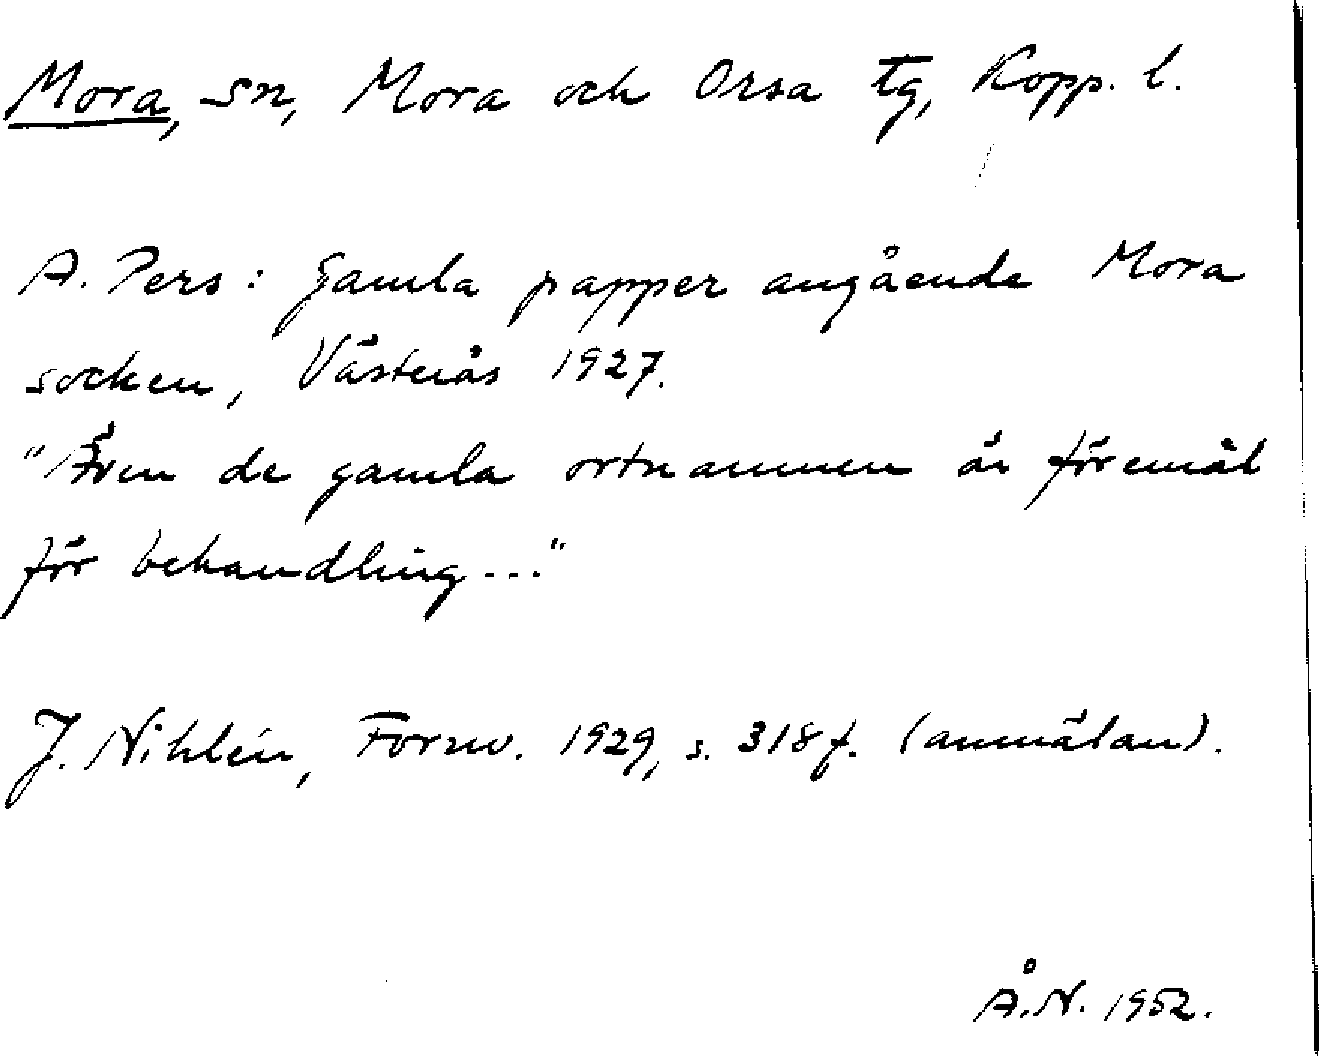 Mora, sn, Mora och Orsa tg, Kopp. l.
A. Pers: Gamla papper angående Mora
socken, Västerås 1927.
"Även de gamla ortnamnen är föremål
för behandling..."
J. Nihlén, Fornv. 1929, s. 318 f. (anmälan).
Å.N. 1952.